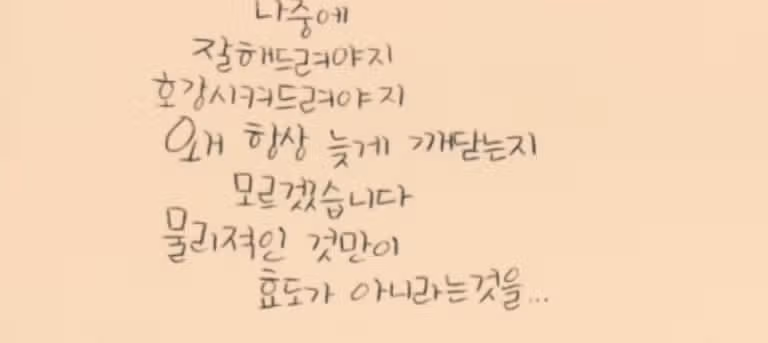 나중에
잘해드려야지
호강시켜드려야지
왜 항상 늦게 깨닫는지
모르겠습니다
물리적인 것만이
효도가 아니라는것을...